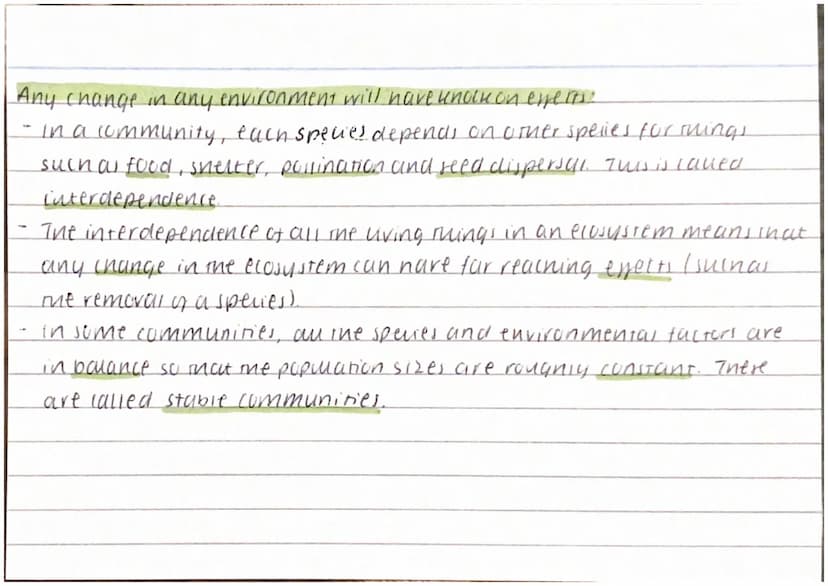 Any change in any environment will have knock on effects:
- In a community, each species depends on other species for things
such as food, shelter, pollination and seed dispersal. This is called
interdependence.
- The interdependence of all the living things in an ecosystem means that
any change in the ecosystem can have far reaching effects (such as
the removal of a species).
- In some communities, all the species and environmental factors are
in balance so that the population sizes are roughly constant. There
are called stable communities.